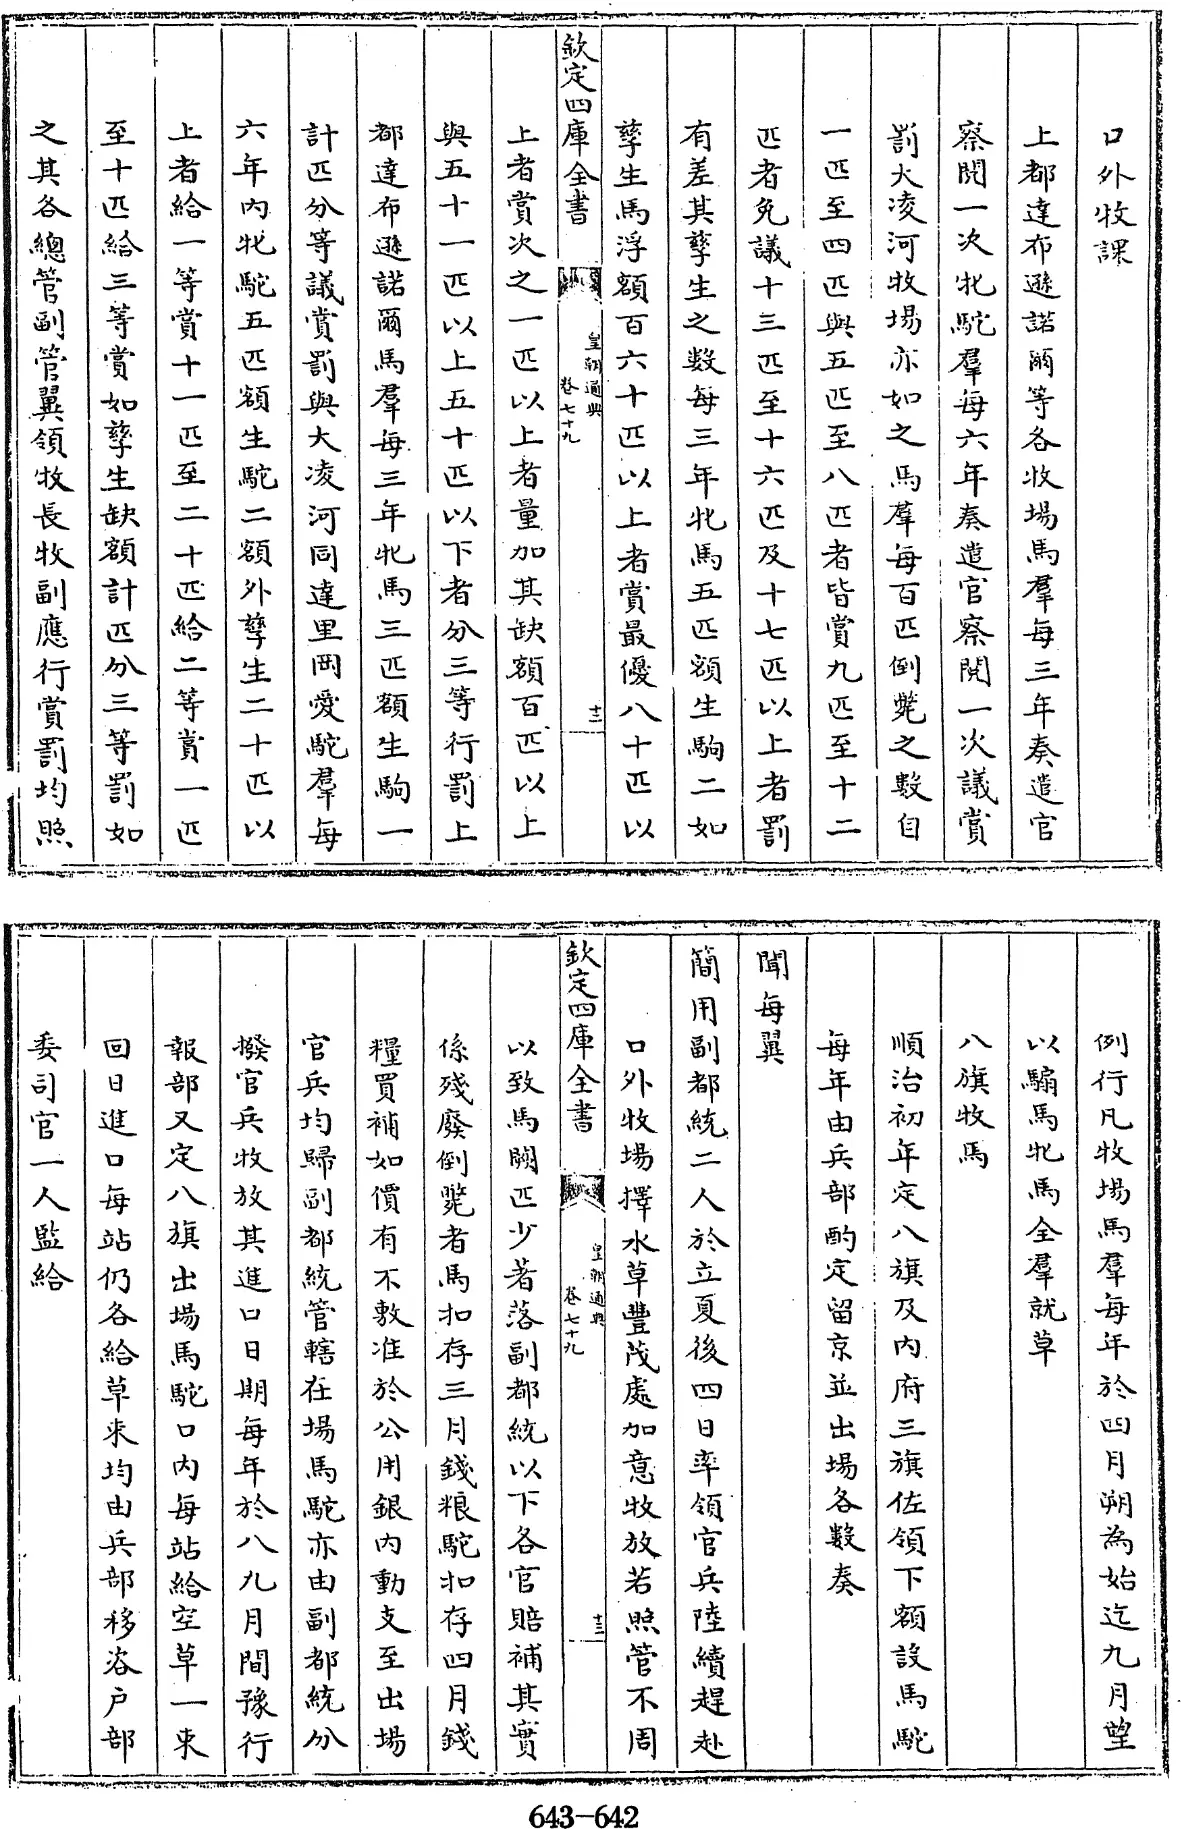 口外牧課
上都達布遜諾爾等各牧場馬羣每三年奏遣官
察閱一次牝駝羣每六年奏遣官察閱一次議賞
罰大凌河牧場亦如之馬羣每百匹倒斃之數自
一匹至四匹與五匹至八匹者皆賞九匹至十二
匹者免議十三匹至十六匹及十七匹以上者罰
有差其孳生之數每三年牝馬五匹額生駒二如
孳生馬浮額百六十匹以上者賞最優八十匹以
欽定四庫全書
皇朝通典
卷七十九
十二
上者賞次之一匹以上者量加其缺額百匹以上
與五十一匹以上五十匹以下者分三等行罰上
都達布遜諾爾馬羣每三年牝馬三匹額生駒一
計匹分等議賞罰與大凌河同達里岡愛駝羣每
六年內牝駝五匹額生駝二額外孳生二十匹以
上者給一等賞十一匹至二十匹給二等賞一匹
至十匹給三等賞如孳生缺額計匹分三等罰如
之其各總管副管翼領牧長牧副應行賞罰均照
例行凡牧場馬羣每年於四月朔為始迄九月望
以騸馬牝馬全羣就草
八旗牧馬
順治初年定八旗及內府三旗佐領下額設馬駝
每年由兵部酌定留京並出場各數奏
聞每翼
簡用副都統二人於立夏後四日率領官兵陸續趕赴
口外牧場擇水草豐茂處加意牧放若照管不周
欽定四庫全書
皇朝通典
卷七十九
十三
以致馬闕匹少著落副都統以下各官賠補其實
係殘廢倒斃者馬扣存三月錢粮駝扣存四月錢
糧買補如價有不敷准於公用銀內動支至出場
官兵均歸副都統管轄在場馬駝亦由副都統分
撥官兵牧放其進口日期每年於八九月間豫行
報部又定八旗出場馬駝口內每站給空草一束
回日進口每站仍各給草束均由兵部移咨户部
委司官一人監給
643-642